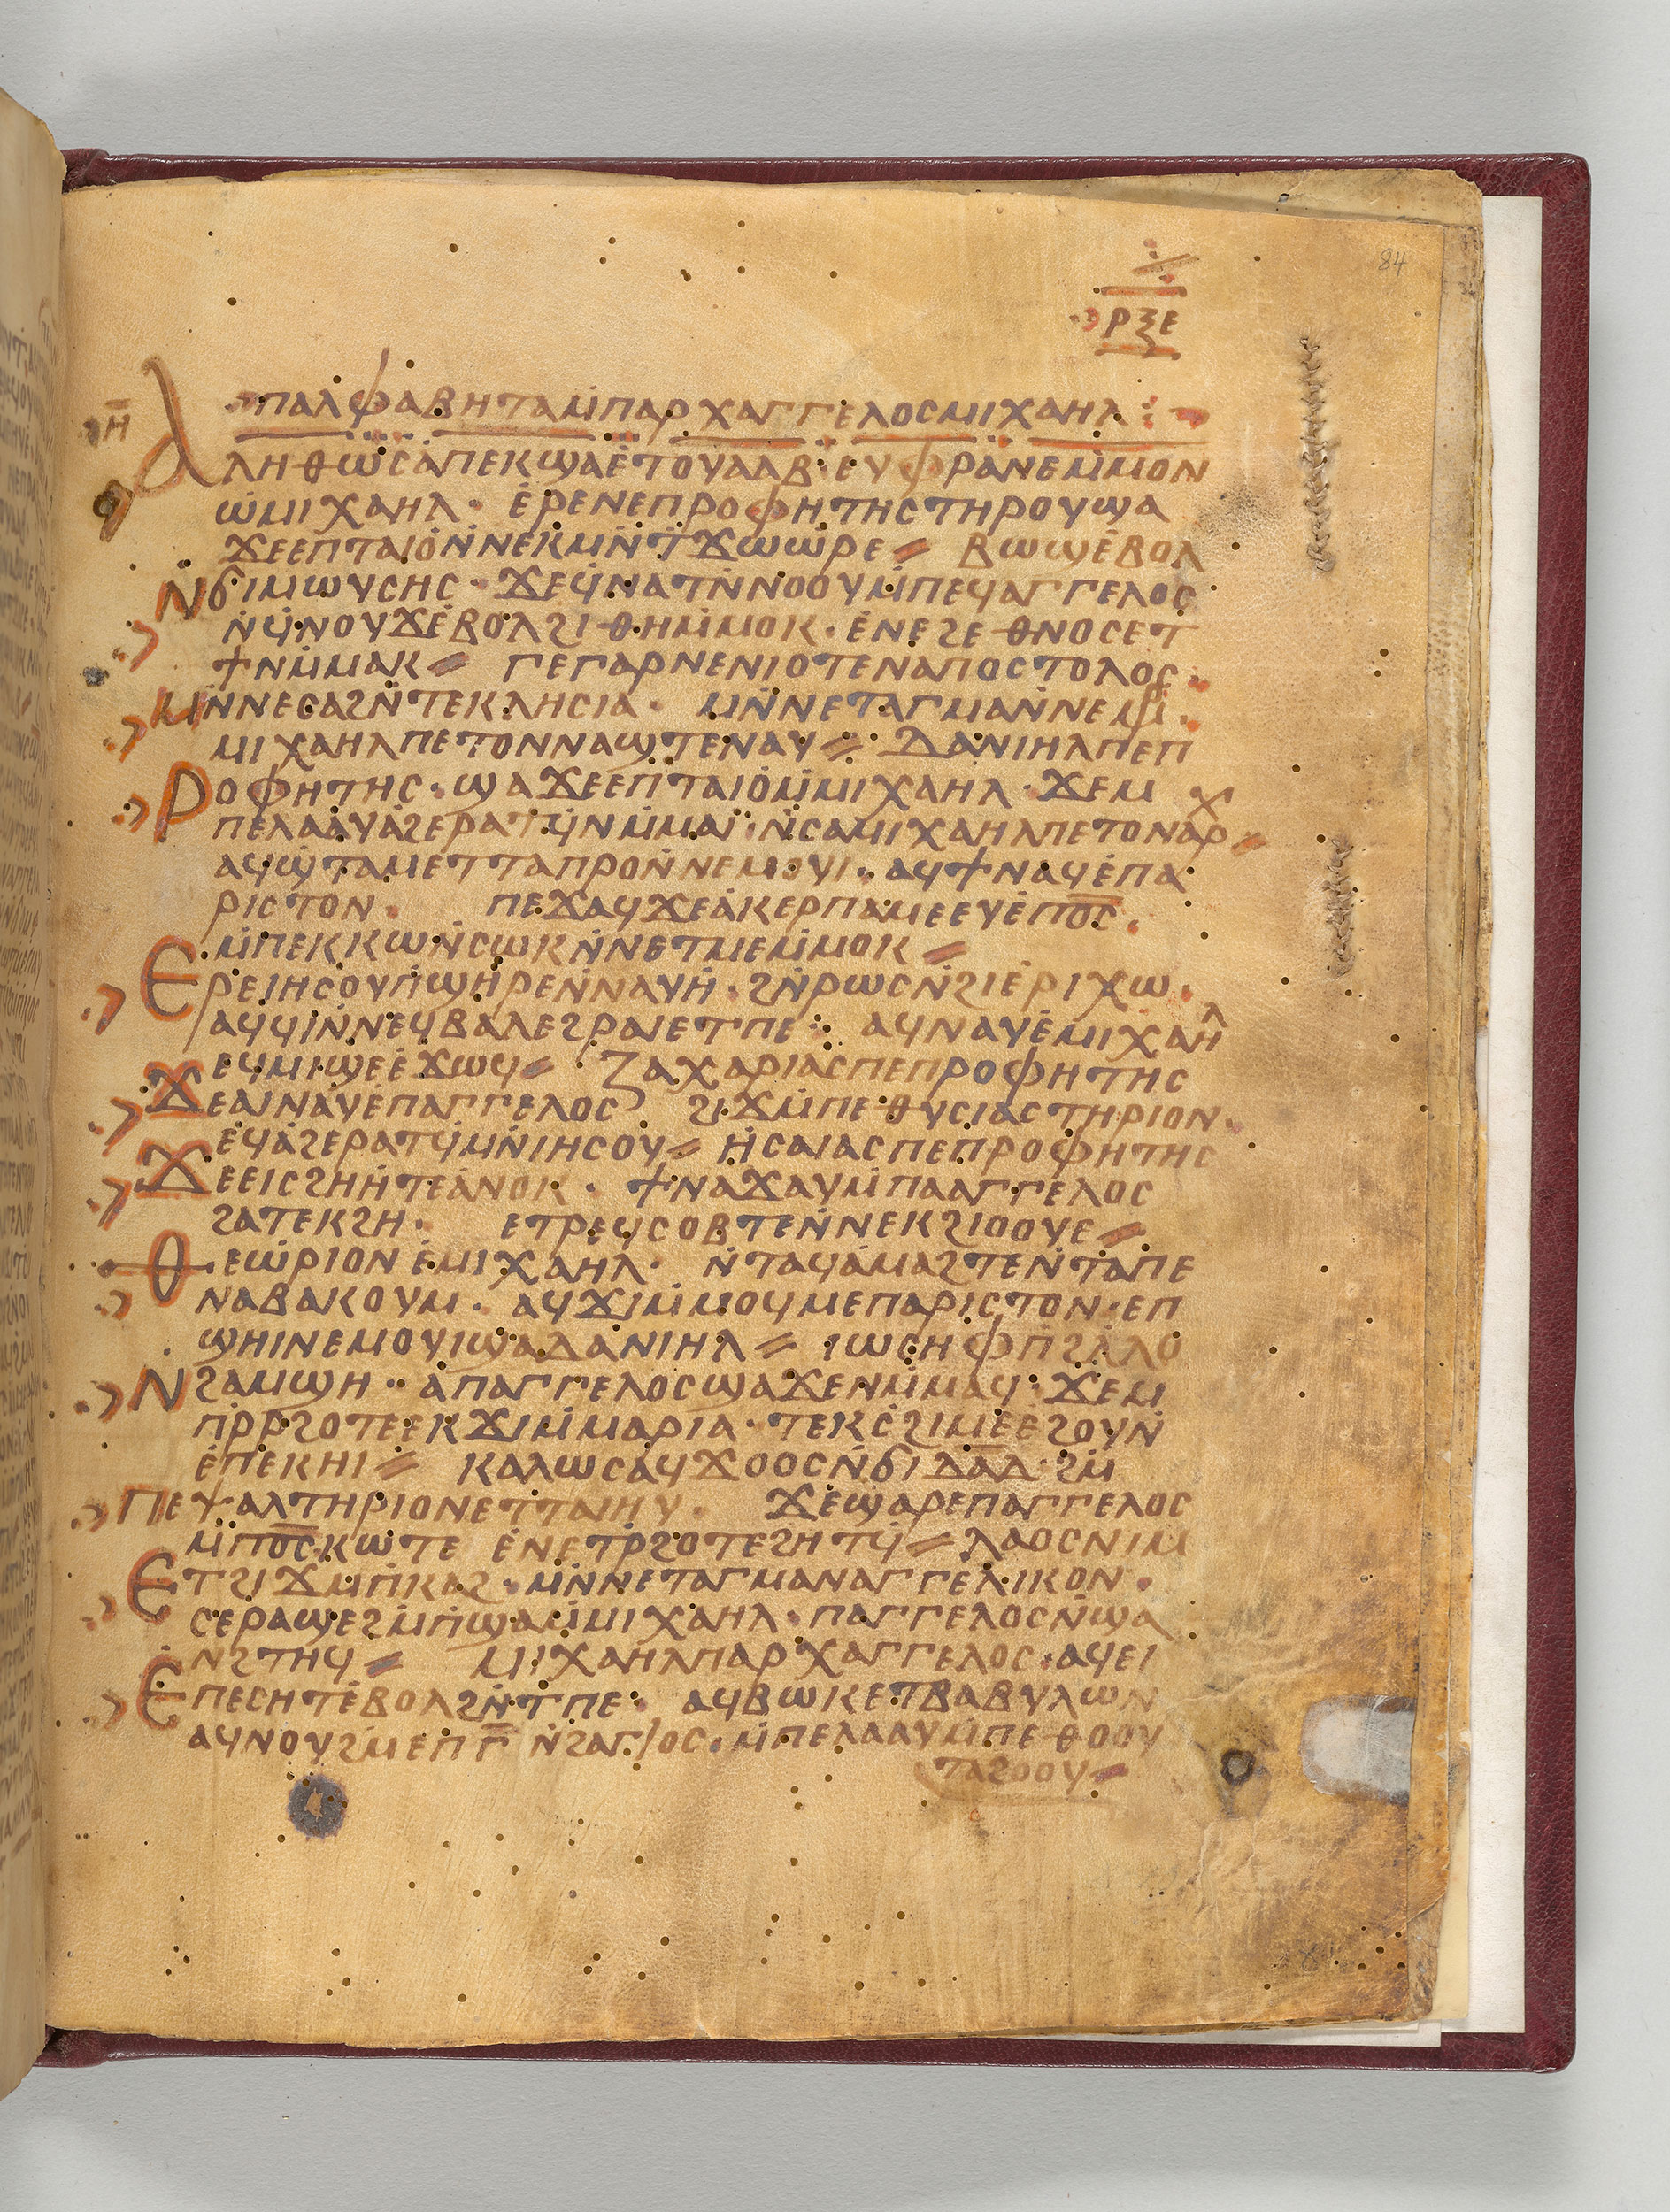 84
ⲣⲝⲉ
ⲏ̄
ⲡⲁⲗⲫⲁⲃⲏⲧⲁⲙ̇ⲡⲁⲣⲭⲁⲅⲅⲉⲗⲟⲥⲙⲓⲭⲁⲏⲗ
ⲁⲗⲏⲑⲱⲥⲁ̇ⲡⲉⲕϣⲁⲉ̇ⲧⲟⲩⲁⲁⲃ· ⲉⲩⲫⲣⲁⲛⲉⲙ̇ⲙⲟⲛ
ⲱ̇ⲙⲓⲭⲁⲏⲗ· ⲉ̇ⲣⲉⲛⲉⲡⲣⲟⲫⲏⲧⲏⲥⲧⲏⲣⲟⲩϣⲁ
ϫⲉⲉⲡⲧⲁⲓⲟ̇ⲛ̇ⲛⲉⲕⲙⲛ̇ⲧ̇ϫⲱⲱ̇ⲣⲉ⸗ ⲃⲱϣⲉ̇ⲃⲟⲗ
ⲛ̇ϭⲓⲙⲱⲩⲥⲏⲥ· ϫⲉϥ̇ⲛⲁⲧⲛ̇ⲛⲟⲟⲩⲙ̇ⲡⲉϥⲁⲅⲅⲉⲗⲟⲥ
ⲛ̇ϥ̇ⲛⲟⲩϫⲉ̇ⲃⲟⲗϩⲓⲑⲏⲙ̇ⲙⲟⲕ· ⲉ̇ⲛⲉϩⲉⲑⲛⲟⲥⲉⲧ
ϯⲛⲙ̇ⲙⲁⲕ⸗ ⲅⲉⲅⲁⲣⲛⲉⲛⲓⲟⲧⲉⲛⲁⲡⲟⲥⲧⲟⲗⲟⲥ·
ⲙⲛ̇ⲛⲉⲥⲁϩⲛ̇ⲧⲉⲕⲗⲏⲥⲓⲁ· ⲙⲛ̇ⲛⲉⲧⲁⲅⲙⲁⲛ̇ⲛⲉⲙⲡ̣
ⲙⲓⲭⲁⲏⲗⲡⲉⲧⲟⲛⲛⲁϣⲧⲉⲛⲁⲩ⸗ ⲇⲁⲛⲓⲏⲗⲡⲉⲡ
ⲣⲟⲫⲏⲧⲏⲥ· ϣⲁϫⲉⲉⲡⲧⲁⲓⲟ̇ⲙ̇ⲙⲓⲭⲁⲏⲗ· ϫⲉⲙ
ⲡⲉⲗⲁⲁⲩⲁ̇ϩⲉⲣⲁⲧϥ̇ⲛⲙ̇ⲙⲁⲓ̈· ⲛ̇ⲥⲁⲙⲓⲭⲁⲏⲗⲡⲉⲧⲟⲛⲁⲣⲭ⸗
ⲁϥϣ̇ⲧⲁⲙⲉⲧⲧⲁⲡⲣⲟⲛ̇ⲛⲉⲙⲟⲩⲓ· ⲁϥϯⲛⲁϥⲉ̇ⲡⲁ
ⲣⲓⲥⲧⲟⲛ· ⲡⲉϫⲁϥϫⲉⲁ̇ⲕⲉⲣⲡⲁⲙⲉⲉⲩⲉ̇ⲡⲟ̅ⲥ̅·
ⲙ̇ⲡⲉⲕⲕⲱⲛ̇ⲥⲱⲕⲛ̇ⲛⲉⲧⲙⲉⲙ̇ⲙⲟⲕ⸗
ⲉⲣⲉⲓⲏⲥⲟⲩⲡ̇ϣⲏ̇ⲣⲉⲛ̇ⲛⲁⲩⲏ̇· ϩⲛ̇ⲣⲱⲥⲛ̇ϩⲓⲉ̇ⲣⲓⲭⲱ·
ⲁϥϥⲓⲛ̇ⲛⲉϥⲃⲁⲗⲉϩⲣⲁⲓⲉⲧⲡⲉ· ⲁϥⲛⲁⲩⲉ̇ⲙⲓⲭⲁⲏⲗ
ⲉϥⲙⲓϣⲉⲉ̇ϫⲱϥ⸗ ⲍⲁⲭⲁⲣⲓⲁⲥⲡⲉⲡⲣⲟⲫⲏⲧⲏⲥ
ϫⲉⲁⲓⲛⲁⲩⲉ̇ⲡⲁⲅⲅⲉⲗⲟⲥ ϩⲓϫⲙ̇ⲡⲉⲑⲩⲥⲓⲁⲥⲧⲏⲣⲓⲟⲛ·
ⲉϥⲁ̇ϩⲉⲣⲁⲧϥ̇ⲙⲛ̇ⲓⲏⲥⲟⲩ⸗ ⲏ̇ⲥⲁⲓⲁⲥⲡⲉⲡⲣⲟⲫⲏⲧⲏⲥ
ϫⲉⲉⲓⲥϩⲏⲏ̇ⲧⲉⲁ̇ⲛⲟⲕ· ϯⲛⲁϫⲁⲩⲙ̇ⲡⲁⲁⲅⲅⲉⲗⲟⲥ
ϩⲁⲧⲉⲕϩⲏ· ⲉⲧⲣⲉϥⲥⲟⲃⲧⲉⲛ̇ⲛⲉⲕϩⲓⲟⲟⲩⲉ⸗
ⲑⲉⲱ̇ⲣⲓⲟⲛⲉ̇ⲙⲓⲭⲁⲏⲗ· ⲛ̇ⲧⲁϥⲁ̇ⲙⲁϩⲧⲉⲛ̇ⲧⲁⲡⲉ
ⲛⲁⲃⲁⲕⲟⲩⲙ· ⲁϥϫⲓⲙ̇ⲙⲟϥⲙⲉⲡⲁⲣⲓⲥⲧⲟⲛ· ⲉⲡ
ϣⲏⲓⲛⲉⲙⲟⲩⲓϣⲁⲇⲁⲛⲓⲏⲗ⸗ ⲓⲱⲥⲏⲫⲡ̇ϩⲗ̇ⲗⲟ
ⲛϩⲁⲙϣⲏ· ⲁ̇ⲡⲁⲅⲅⲉⲗⲟⲥϣⲁϫⲉⲛⲙ̇ⲙⲁϥ· ϫⲉⲙ
ⲡ̇ⲣ̇ⲣ̇ϩⲟⲧⲉⲉⲕϫⲓⲙ̇ⲙⲁⲣⲓⲁ· ⲧⲉⲕⲥ̇ϩⲓⲙⲉⲉ̇ϩⲟⲩⲛ̇
ⲉ̇ⲡⲉⲕⲏⲓ⸗ ⲕⲁⲗⲱⲥⲁ̇ϥϫⲟⲟⲥⲛ̇ϭⲓⲇⲁ̅ⲇ̅· ϩⲙ̇
ⲡⲉⲯⲁⲗⲧⲏⲣⲓⲟⲛⲉⲧⲧⲁⲓⲏⲩ· ϫⲉϣⲁⲣⲉⲡⲁⲅⲅⲉⲗⲟⲥ
ⲙ̇ⲡⲟ̅ⲥ̅ⲕⲱⲧⲉ ⲉ̇ⲛⲉⲧⲣ̇ϩⲟⲧⲉϩⲏⲧϥ̇⸗ ⲗⲁⲟⲥⲛⲓⲙ
ⲉⲧϩⲓϫⲙ̇ⲡ̇ⲕⲁϩ· ⲙⲛ̇ⲛⲉⲧⲁⲅⲙⲁⲛⲁⲅⲅⲉⲗⲓⲕⲟⲛ·
ⲥⲉⲣⲁϣⲉϩⲙ̇ⲡ̇ϣⲁⲙ̇ⲙⲓⲭⲁⲏⲗ· ⲡⲁⲅⲅⲉⲗⲟⲥⲛ̇ϣⲁ
ⲛϩⲧⲏϥ⸗ ⲙⲓⲭⲁⲏⲗⲡⲁⲣⲭⲁⲅⲅⲉⲗⲟⲥ· ⲁϥⲉⲓ
ⲉⲡⲉⲥⲏⲧⲉ̇ⲃⲟⲗϩⲛ̇ⲧⲡⲉ· ⲁϥⲃⲱⲕⲉⲧⲃⲁⲃⲩⲗⲱⲛ
ⲁϥⲛⲟⲩϩⲙⲉⲡⲅ̅ ⲛ̇ϩⲁⲅⲓⲟⲥ· ⲙ̇ⲡⲉⲗⲁⲁⲩⲙ̇ⲡⲉⲑⲟⲟⲩ
ⲧⲁϩⲟⲟⲩ⸗